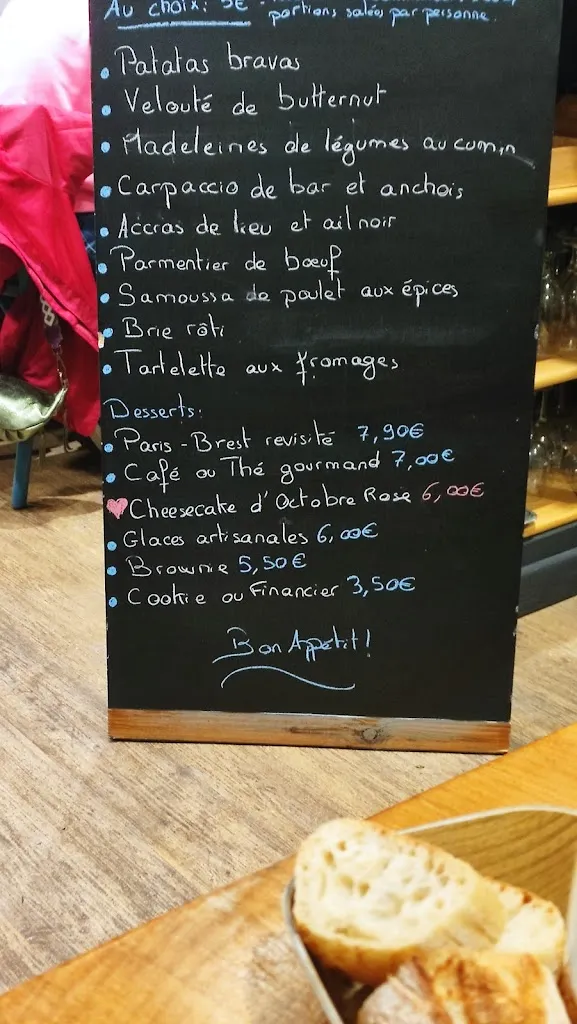 Au choix: 5€
portions salées par personne.
Patatas bravas
Velouté de butternut
Madeleines de légumes au cumin
Carpaccio de bar et anchois
Accras de lieu et ail noir
Parmentier de bœuf
Samoussa de poulet aux épices
Brie rôti
Tartelette aux fromages
Desserts:
Paris-Brest revisité 7,90€
Café ou Thé gourmand 7,00€
Cheesecake d'Octobre Rose 6,00€
Glaces artisanales 6,00€
Brownie 5,50€
Cookie ou Financier 3,50€
Bon Appétit!